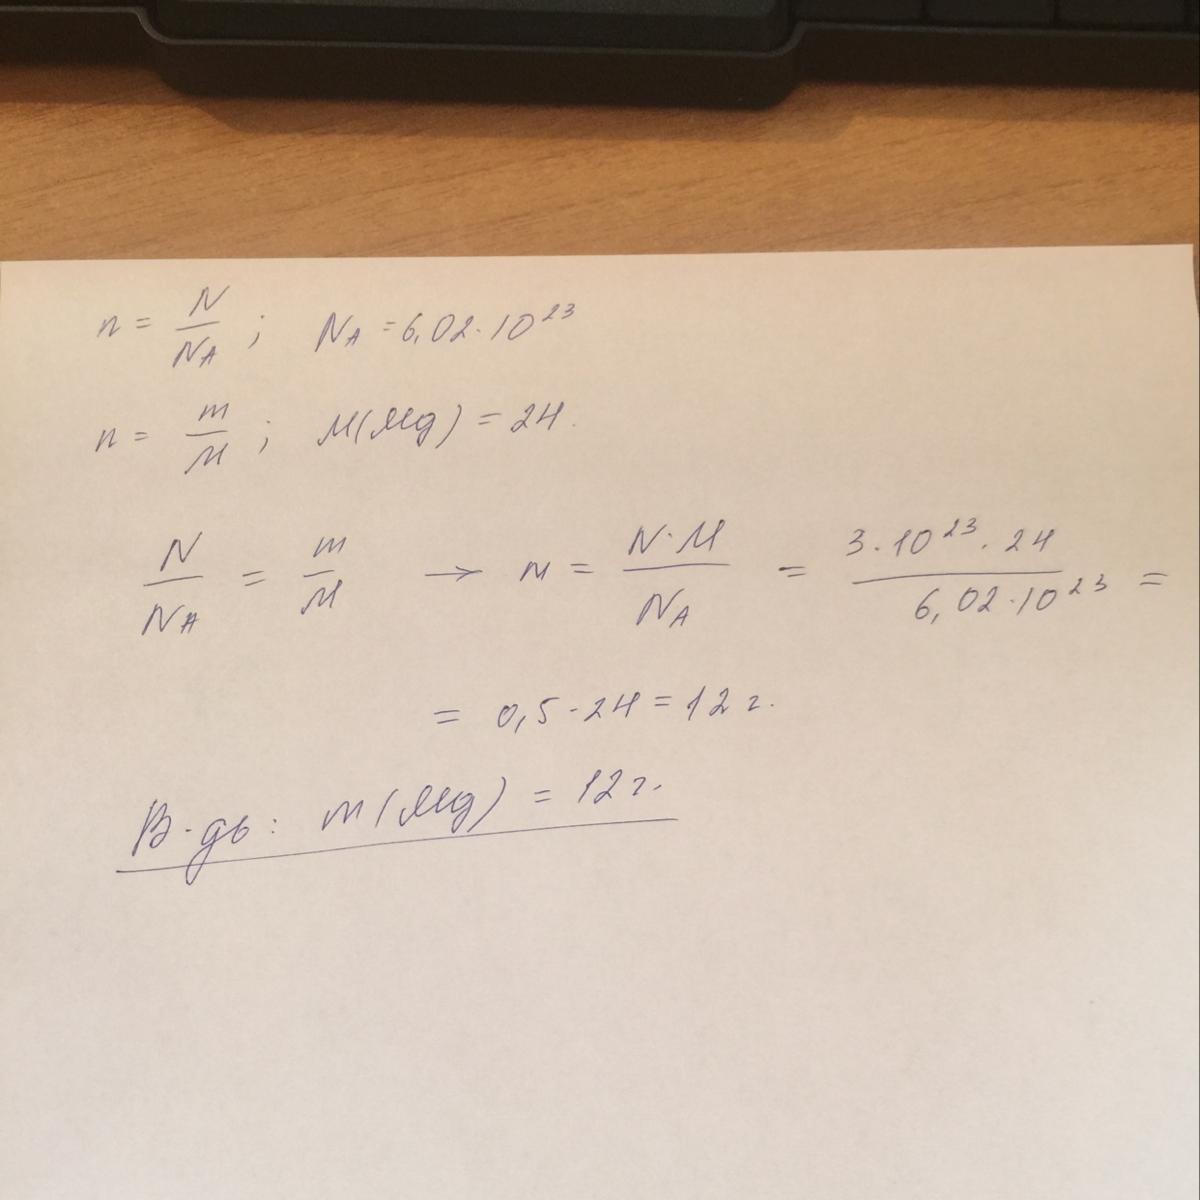 n = N/N_A ; N_A = 6,02·10²³
n = m/M ; M(Mg) = 24.
N/N_A = m/M → m = N·M/N_A = 3·10²³·24/6,02·10²³ =
= 0,5·24 = 12 г.
В-дь: m(Mg) = 12 г.